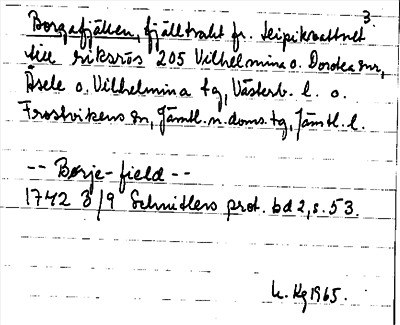 3.
Borgafjällen, fjälltrakt fr. Leipikvattnet
till riksrös 205 Vilhelmina o. Dorotea snr,
Åsele o. Vilhelmina tg, Västerb. l. o.
Frostvikens sn, Jämtl. n. doms. tg, Jämtl. l.
-- Børje-field --
1742 3/9 Schnitlers prot. bd 2, s. 53.
K. Hg 1965.